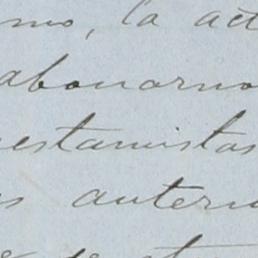 mo, la act
abonarno
estamistas
s anteri